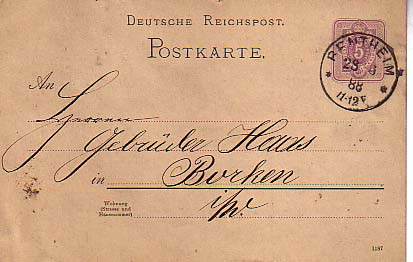 DEUTSCHE REICHSPOST.
POSTKARTE.
5
RENTHEIM
23 8
88
11-12 V
An
Herren
Gebrüder Haas
in Borken
i/W.
Wohnung
(Strasse und
Hausnummer)
1187